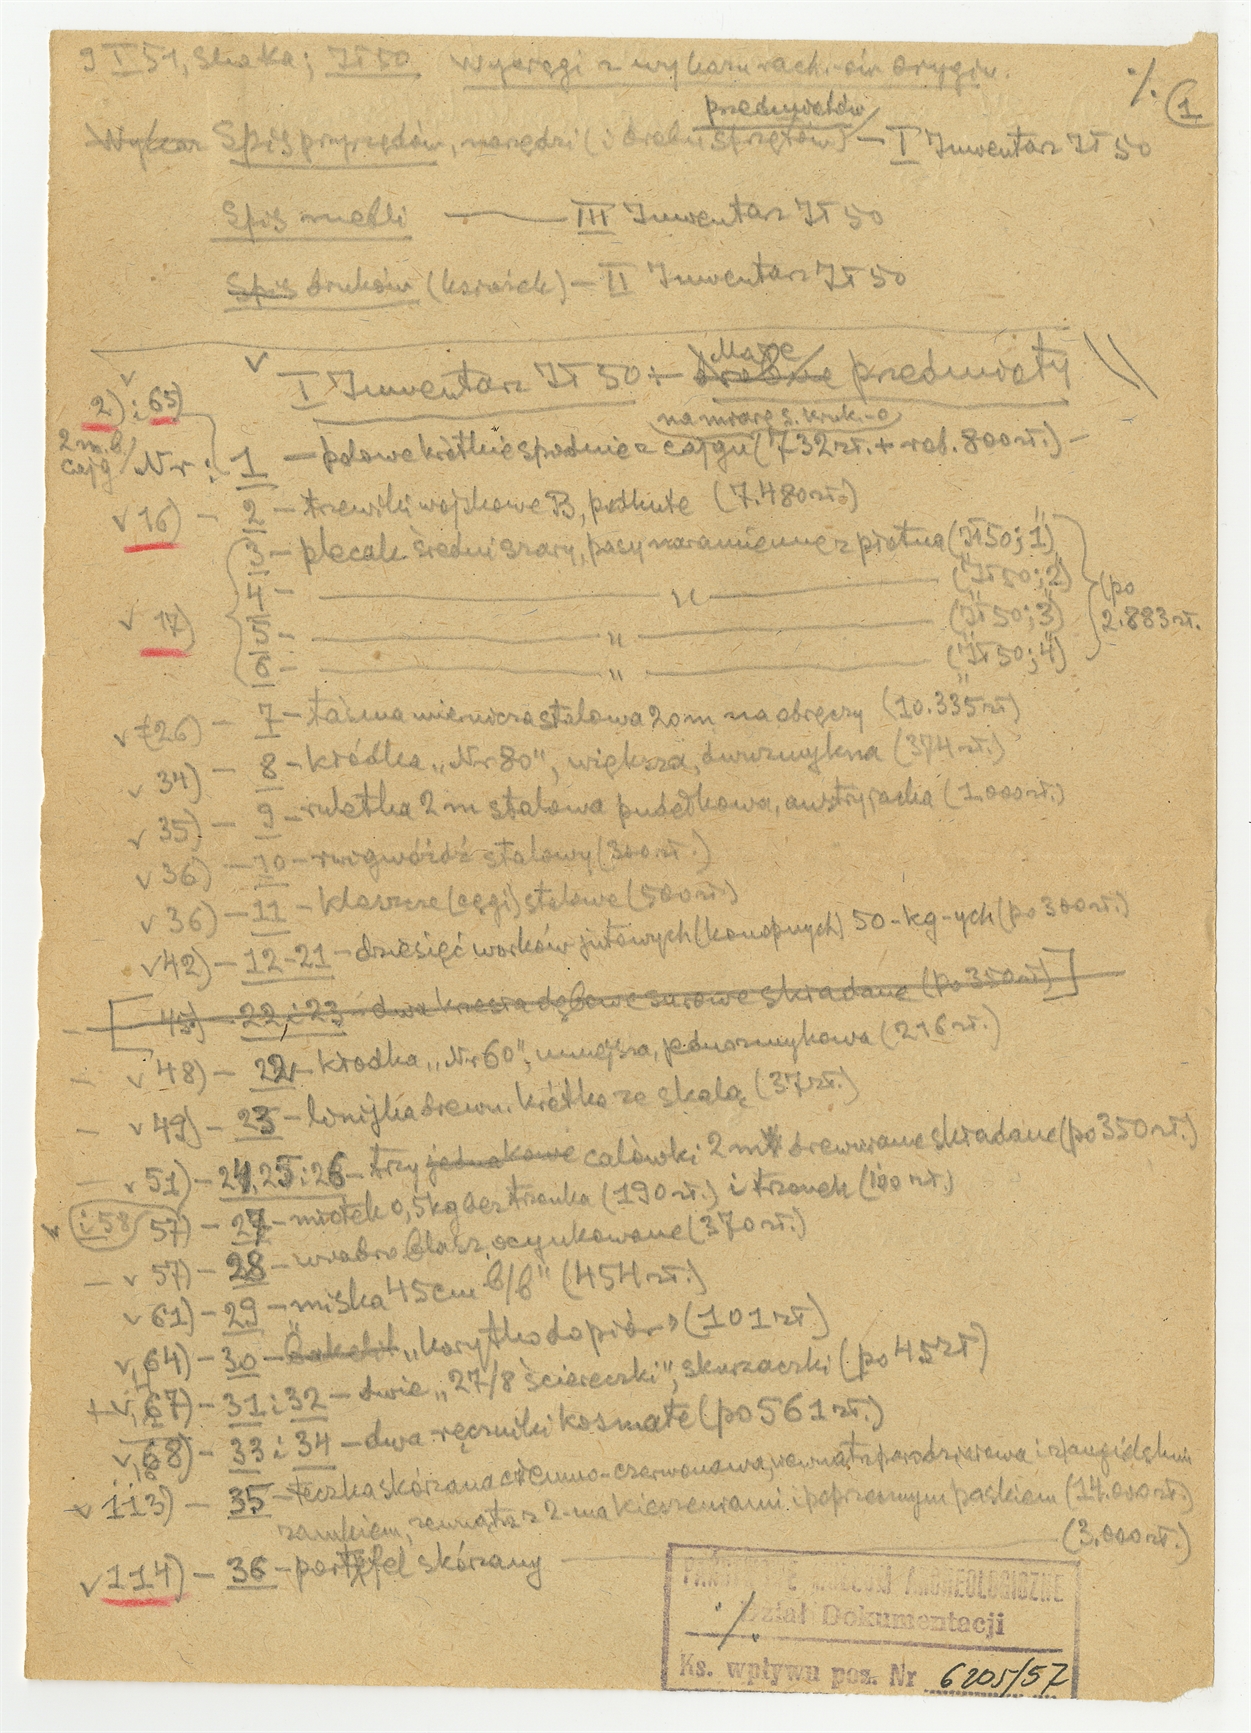 9 I 51, Skaka; JT 50 Wyciągi z wykazu rach-ów orygin. ./. 1
przedmiotów
Wykaz Spis przyrządów, narzędzi (i drobn. sprzętów) — I Inwentarz JT 50
Spis mebli — III Inwentarz JT 50
Spis druków (książek) — II Inwentarz JT 50
Małe
I Inwentarz JT 50 + drobne przedmioty
2) i 65)
na miarę s. kruk.-o
2 m. b. cajg Nr: 1 — polowe krótkie spodnie z cajgu (732 zł. + rob. 800 zł.) —
v 16) — 2 — trzewiki wojskowe B, podkute (7.480 zł.)
3 — plecak średni szary, pasy naramienne z płótna (JT 50; 1)
4 — " — (JT 50; 2) (po
v 17) 5 — " — (JT 50; 3) 2.883 zł.
6 — " — (JT 50; 4)
v 26) — 7 — taśma miernicza stalowa 20 m na obręczy (10.335 zł)
v 34) — 8 — kłódka „Nr 80", większa, dwuzmykna (374 zł.)
v 35) — 9 — ruletka 2 m stalowa pudełkowa, austryjacka (1.000 zł.)
v 36) — 10 — rwigwóźdź stalowy (300 zł.)
v 36) — 11 — kleszcze (cęgi) stalowe (500 zł)
v 42) — 12-21 — dziesięć worków jutowych (konopnych) 50-kg-ych (po 300 zł.)
[45) 22 i 23 — dwa krzesła dębowe surowe składane (po 350 zł)]
— v 48) — 22 — kłodka „Nr 60", mniejsza, jednozmykowa (216 zł.)
— v 49) — 23 — linijka drewn. krótka ze skalą (37 zł.)
— v 51) — 24, 25 i 26 — trzy jednakowe calówki 2 m drewniane składane (po 350 zł.)
v i 58 57) — 27 — młotek 0,5 kg bez trzonka (190 zł.) i trzonek (100 zł.)
— v 57) — 28 — wiadro blasz. ocynkowane (370 zł.)
v 61) — 29 — miska 45 cm b/b" (454 zł.)
v 64) — 30 — Bakelit „korytko do piór" (101 zł)
+ v 67) — 31 i 32 — dwie „27/8 ściereczki", skurzaczki (po 45 zł)
v 68) — 33 i 34 — dwa ręczniki kosmate (po 561 zł.)
v 113) — 35 — teczka skórzana ciemno-czerwonawa, wewnątrz przedziałowa i z angielskim
zamkiem, zewnątrz z 2-ma kieszeniami i poprzecznym paskiem (14.000 zł.)
v 114) — 36 — portfel skórzany — (3.000 zł.)
PAŃSTWOWE MUZEUM ARCHEOLOGICZNE
./. Dział Dokumentacji
Ks. wpływu poz. Nr 6205/57